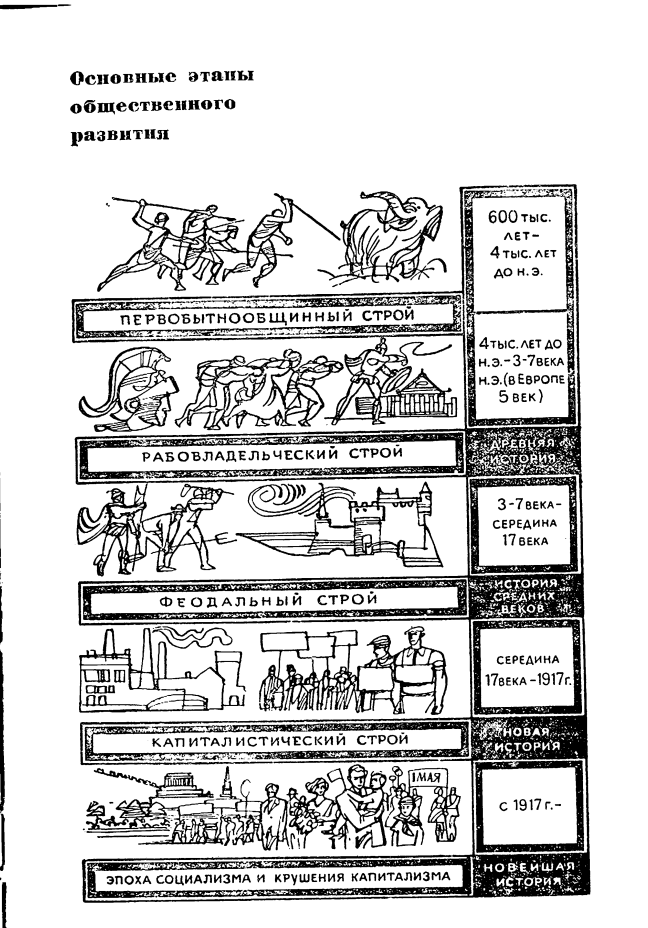 Основные этапы
общественного
развития
600 тыс.
лет–
4 тыс. лет
до н.э.
ПЕРВОБЫТНООБЩИННЫЙ СТРОЙ
4 тыс. лет до
н.э.–3-7 века
н.э.(в Европе
5 век)
РАБОВЛАДЕЛЬЧЕСКИЙ СТРОЙ
ДРЕВНЯЯ
ИСТОРИЯ
3-7 века–
середина
17 века
ФЕОДАЛЬНЫЙ СТРОЙ
ИСТОРИЯ
СРЕДНИХ
ВЕКОВ
СЕРЕДИНА
17 века–1917 г.
КАПИТАЛИСТИЧЕСКИЙ СТРОЙ
НОВАЯ
ИСТОРИЯ
1 МАЯ
с 1917 г.–
ЭПОХА СОЦИАЛИЗМА И КРУШЕНИЯ КАПИТАЛИЗМА
НОВЕЙШАЯ
ИСТОРИЯ